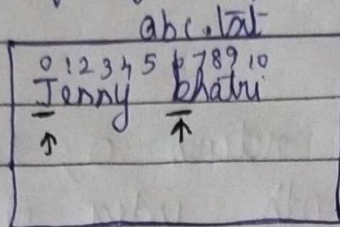 abc.txt
0 1 2 3 4 5 6 7 8 9 10
Jenny Khatri